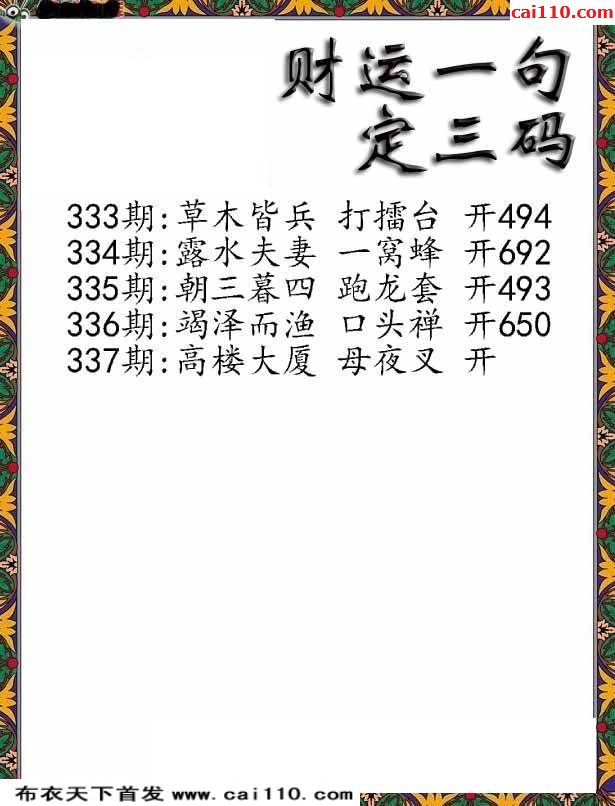 cai110.com
财运一句
定三码
333期:草木皆兵 打擂台 开494
334期:露水夫妻 一窝蜂 开692
335期:朝三暮四 跑龙套 开493
336期:竭泽而渔 口头禅 开650
337期:高楼大厦 母夜叉 开
布衣天下首发 www.cai110.com